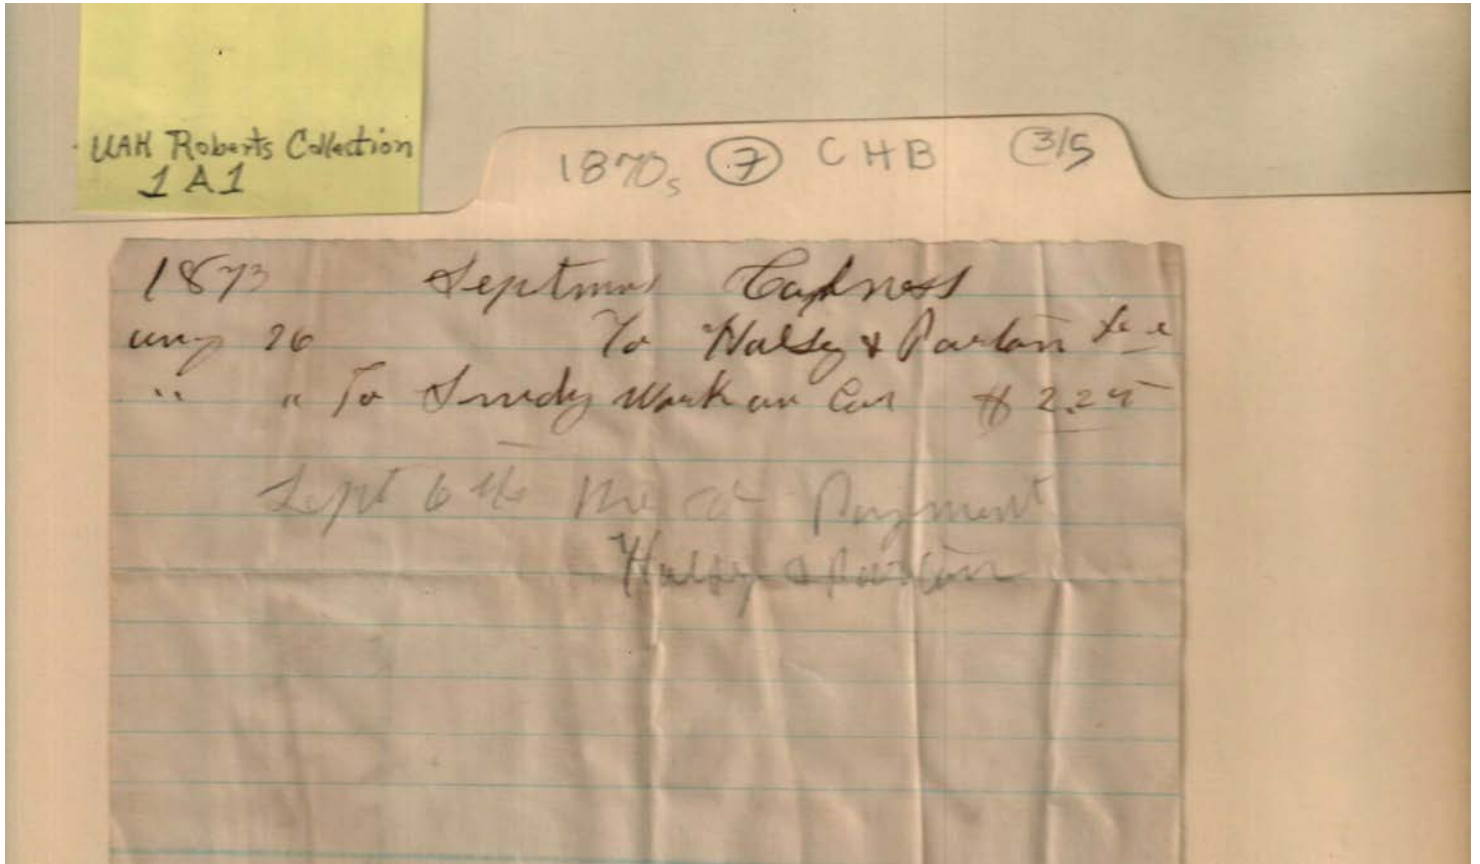 UAH Roberts Collection
1 A 1
1870s 7 CHB 3/5
1873 Septmus Cabness
Aug 26 To Halsey &
" " To Sundry Work on Car $ 2.25
Sept 6th Payment
Halsey &